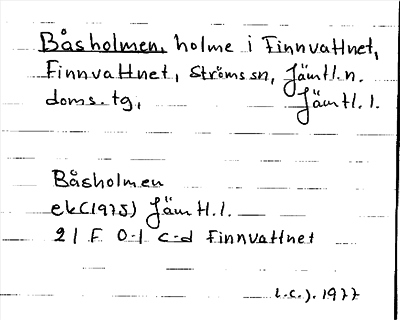 Båsholmen, holme i Finnvattnet,
Finnvattnet, Ströms sn, Jämtl. n.
doms. tg, Jämtl. l.
Båsholmen
ek (1975) Jämtl. l.
21 F 0-1 c-d Finnvattnet
1977